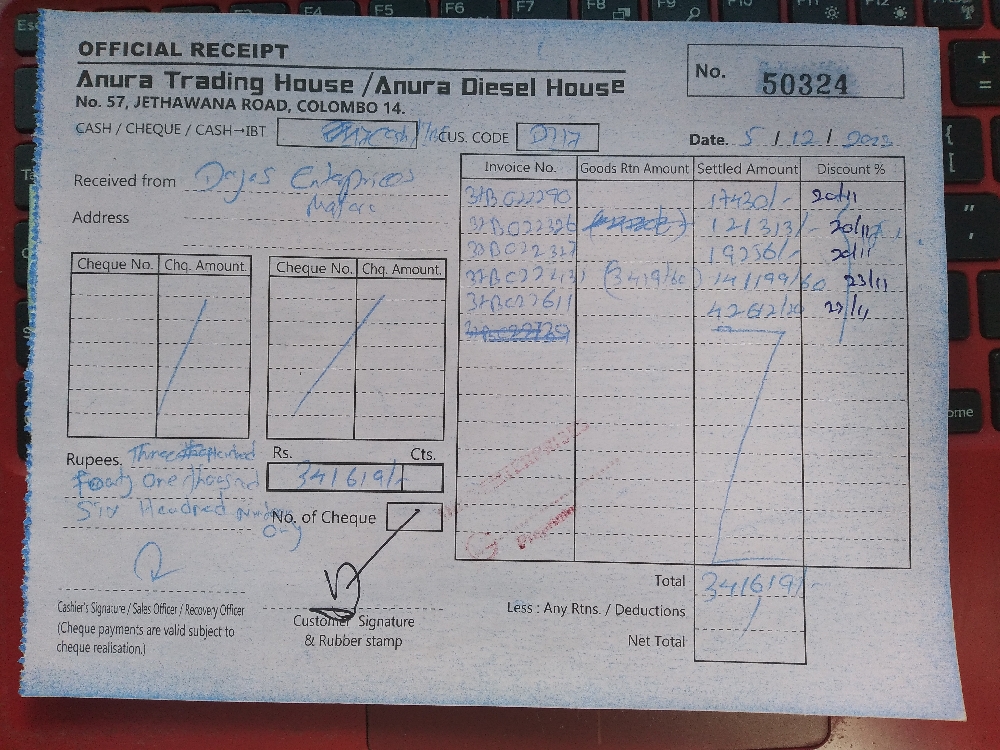 OFFICIAL RECEIPT
Anura Trading House / Anura Diesel House
No. 57, JETHAWANA ROAD, COLOMBO 14.
No. 50324
CASH / CHEQUE / CASH→IBT
CUS. CODE D717
Date. 5 / 12 / 2022
Received from Dayas Enterprices
Matara
Address
Cheque No. Chq. Amount.
Cheque No. Chq. Amount.
Invoice No. Goods Rtn Amount Settled Amount Discount %
37BC22290 17430/- 20/11
37BC22326 121313/- 20/11
37BC22327 19256/- 20/11
37BC22431 (3419/60) 141199/60 23/11
37BC22611 42612/20
Rupees. Three
Fourty One thousand
Six Hundred
Only
Rs. Cts.
341619/-
No. of Cheque
Total 341619/-
Less : Any Rtns. / Deductions
Net Total
Cashier's Signature / Sales Officer / Recovery Officer
(Cheque payments are valid subject to
cheque realisation.)
Customer Signature
& Rubber stamp